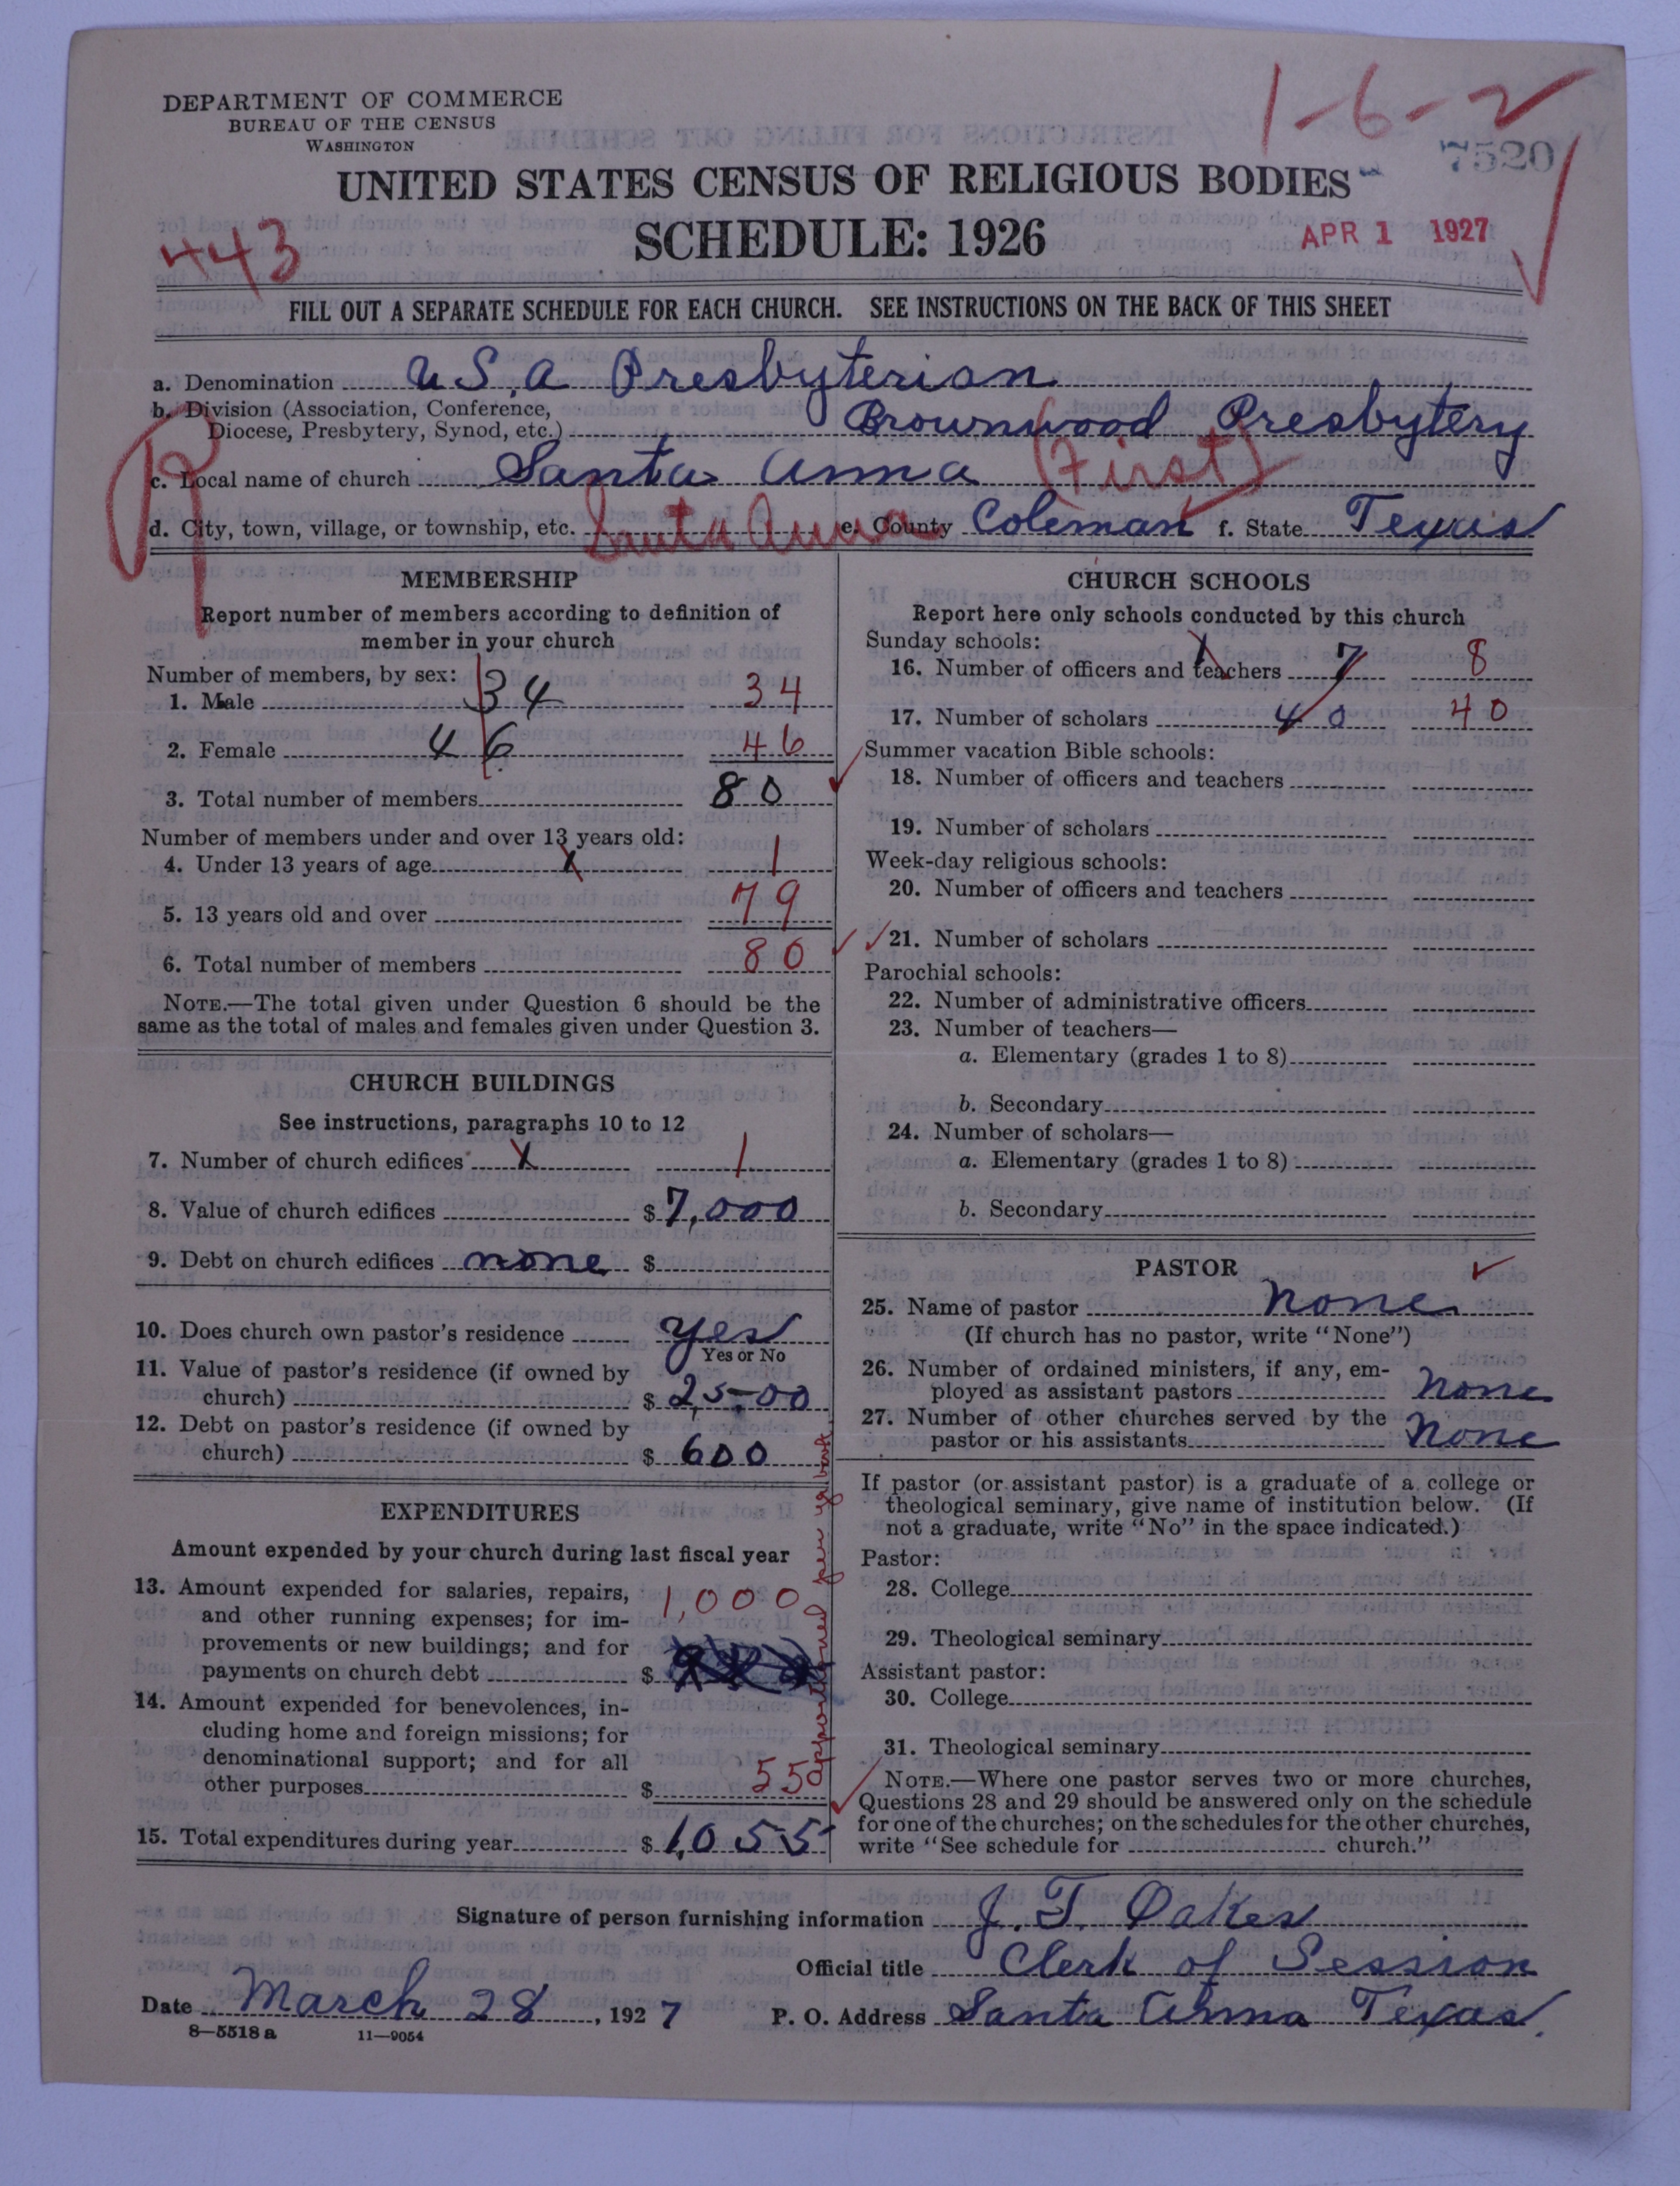 DEPARTMENT OF COMMERCE
BUREAU OF THE CENSUS
WASHINGTON
1-6-2
7520
UNITED STATES CENSUS OF RELIGIOUS BODIES
SCHEDULE: 1926
443
APR 1 1927
FILL OUT A SEPARATE SCHEDULE FOR EACH CHURCH. SEE INSTRUCTIONS ON THE BACK OF THIS SHEET
a. Denomination U S. A Presbyterian
b. Division (Association, Conference,
Diocese, Presbytery, Synod, etc.) Brownwood Presbytery
c. Local name of church Santa Anna (First)
d. City, town, village, or township, etc. Santa Anna e. County Coleman f. State Texas
MEMBERSHIP
Report number of members according to definition of
member in your church
Number of members, by sex:
1. Male 34 34
2. Female 46 46
3. Total number of members 80
Number of members under and over 13 years old:
4. Under 13 years of age X 1
5. 13 years old and over 79
6. Total number of members 80
NOTE.—The total given under Question 6 should be the
same as the total of males and females given under Question 3.
CHURCH BUILDINGS
See instructions, paragraphs 10 to 12
7. Number of church edifices X 1
8. Value of church edifices $ 7,000
9. Debt on church edifices none $
10. Does church own pastor's residence yes
Yes or No
11. Value of pastor's residence (if owned by
church) $ 2,500
12. Debt on pastor's residence (if owned by
church) $ 600
EXPENDITURES
Amount expended by your church during last fiscal year
13. Amount expended for salaries, repairs, 1,000
and other running expenses; for im-
provements or new buildings; and for
payments on church debt $
14. Amount expended for benevolences, in-
cluding home and foreign missions; for
denominational support; and for all
other purposes $ 55
15. Total expenditures during year $ 1,055
apportioned per yr book
CHURCH SCHOOLS
Report here only schools conducted by this church
Sunday schools:
16. Number of officers and teachers X 7 8
17. Number of scholars 40 40
Summer vacation Bible schools:
18. Number of officers and teachers
19. Number of scholars
Week-day religious schools:
20. Number of officers and teachers
21. Number of scholars
Parochial schools:
22. Number of administrative officers
23. Number of teachers—
a. Elementary (grades 1 to 8)
b. Secondary
24. Number of scholars—
a. Elementary (grades 1 to 8)
b. Secondary
PASTOR
25. Name of pastor none
(If church has no pastor, write "None")
26. Number of ordained ministers, if any, em-
ployed as assistant pastors none
27. Number of other churches served by the
pastor or his assistants none
If pastor (or assistant pastor) is a graduate of a college or
theological seminary, give name of institution below. (If
not a graduate, write "No" in the space indicated.)
Pastor:
28. College
29. Theological seminary
Assistant pastor:
30. College
31. Theological seminary
NOTE.—Where one pastor serves two or more churches,
Questions 28 and 29 should be answered only on the schedule
for one of the churches; on the schedules for the other churches,
write "See schedule for church."
Signature of person furnishing information J. T. Oakes
Official title Clerk of Session
Date March 28, 1927 P. O. Address Santa Anna Texas.
8—5518 a 11—9054